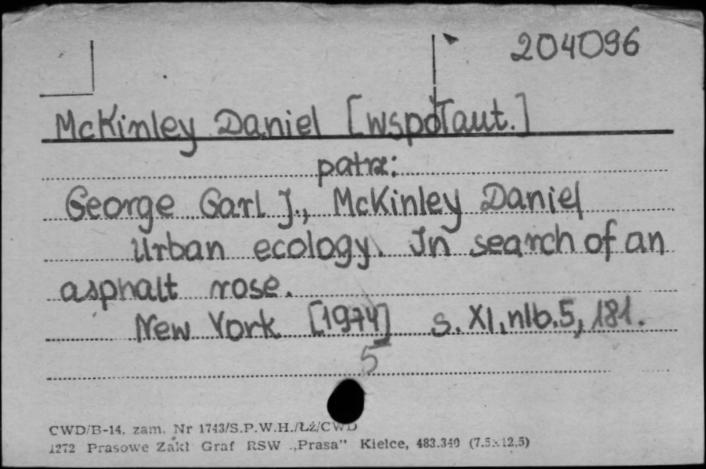 204096
McKinley Daniel [współaut.]
patrz:
George Carl J., McKinley Daniel
Urban ecology. In search of an
asphalt rose.
New York [1974] s. XI, nlb. 5, 181.
5
CWD/B-14. zam. Nr 1743/S.P.W.H./ŁŻ/CWD
1272 Prasowe Zakł Graf RSW „Prasa" Kielce, 483.340 (7.5×12,5)